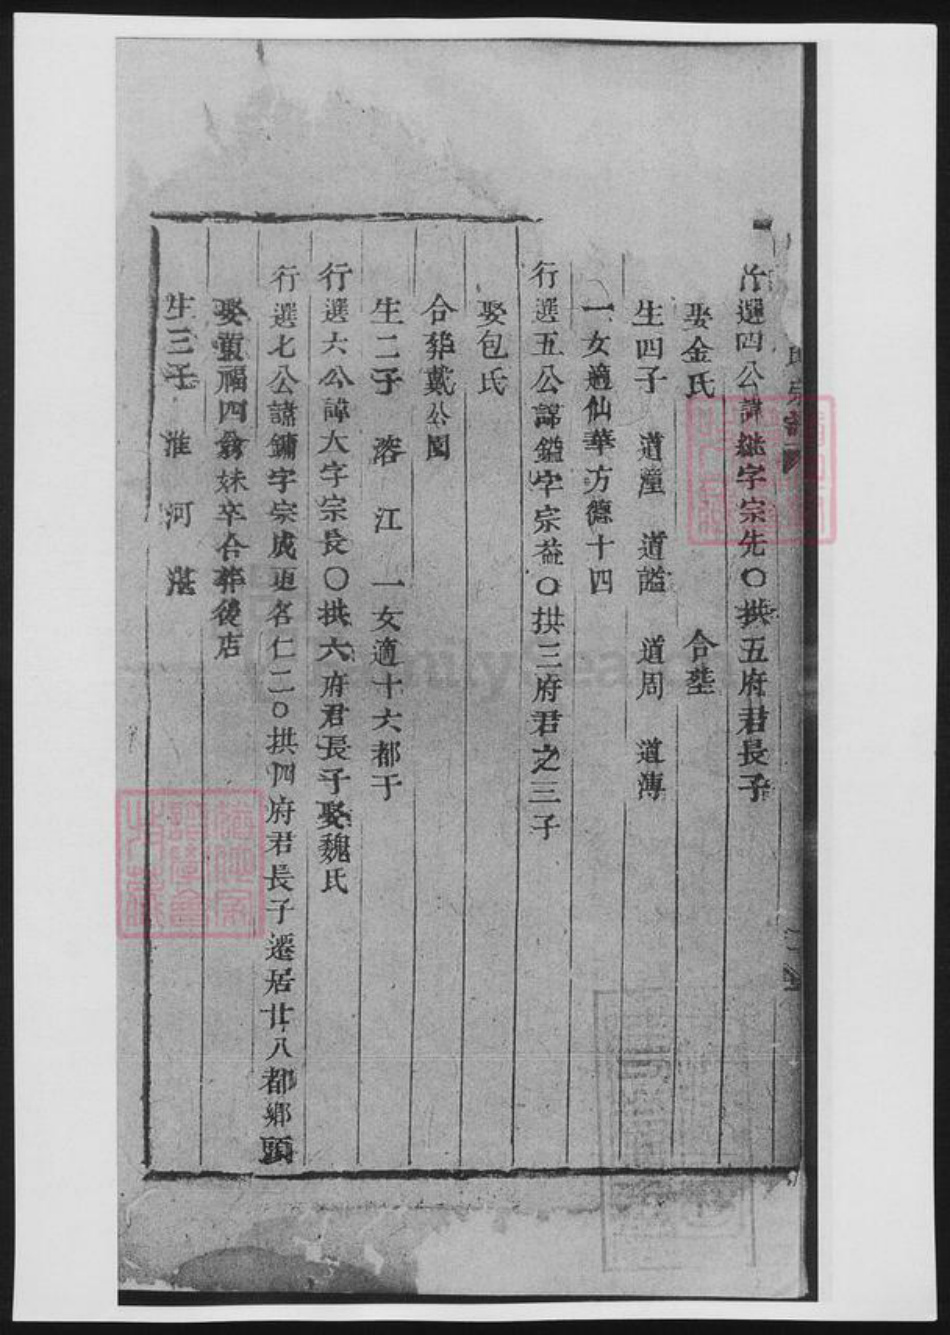 行選四公諱鎡字宗先〇拱五府君長子
娶金氏 合塟
生四子 道瀍 道謐 道周 道溥
一女適仙華方德十四
行選五公諱鎰字宗益〇拱三府君之三子
娶包氏
合葬戴公園
生二子 溶 江 一女適十六都于
行選六公諱大字宗長〇拱六府君長子娶魏氏
行選七公諱鏞字宗成更名仁二〇拱四府君長子遷居廿八都鄉頭
娶黃福四翁妹卒合葬後店
生三子 淮 河 湛